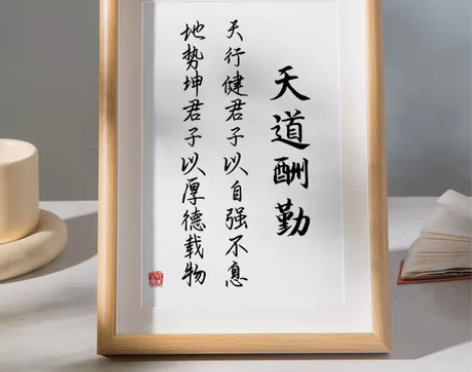 天道酬勤
天行健君子以自强不息
地势坤君子以厚德载物